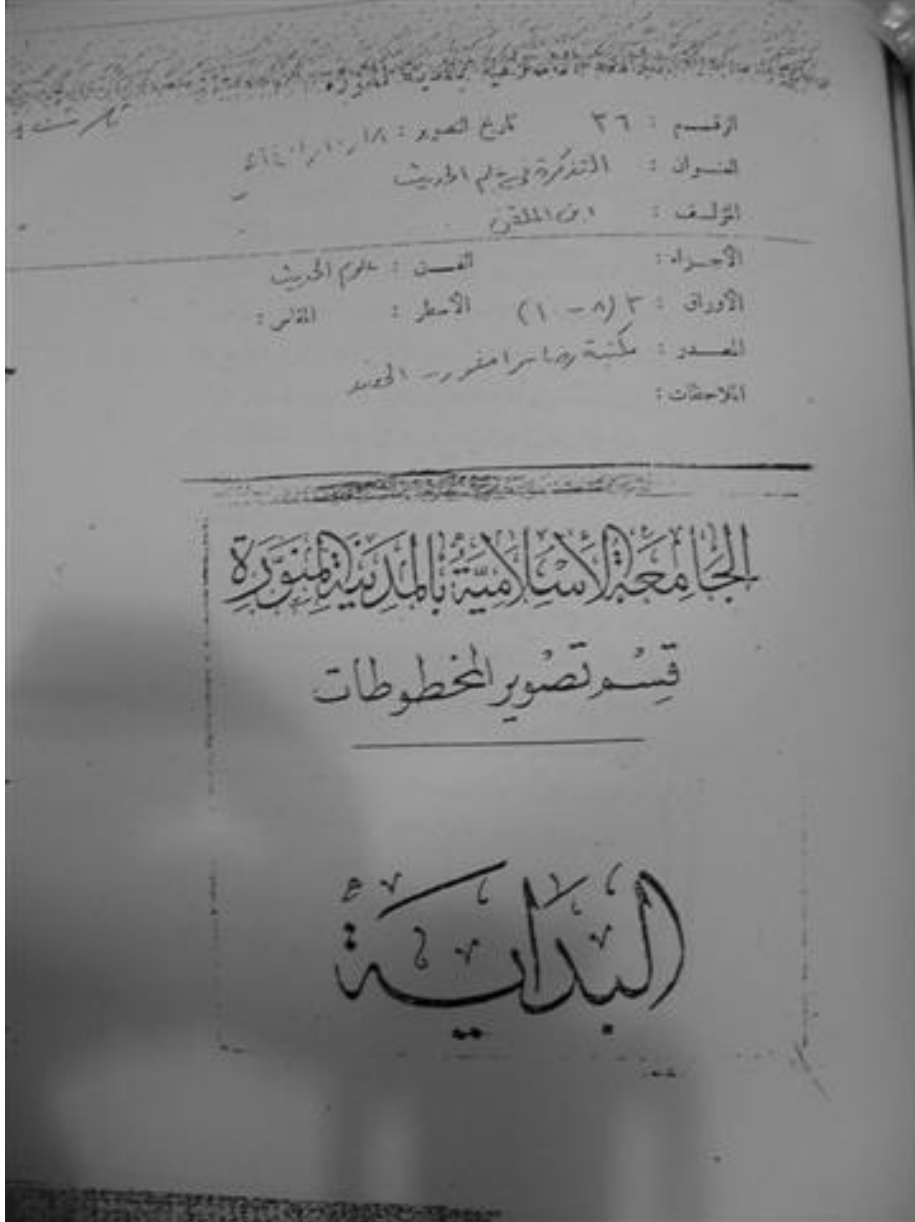 الرقم : ٣٦ تاريخ التصوير :
العنوان : التذكرة في علم الحديث
المؤلف : ابن الملقن
الأجزاء : الفن : علوم الحديث
الأوراق : ٣ (٨ - ١٠) الأسطر : المقاس :
المصدر : مكتبة رضا رامفور - الهند
الملاحظات :
الجَامِعَة الإسْلَامِيَّة بالمَدِينَة المنَوَّرَة
قِسْم تَصْوير المخطوطات
البداية